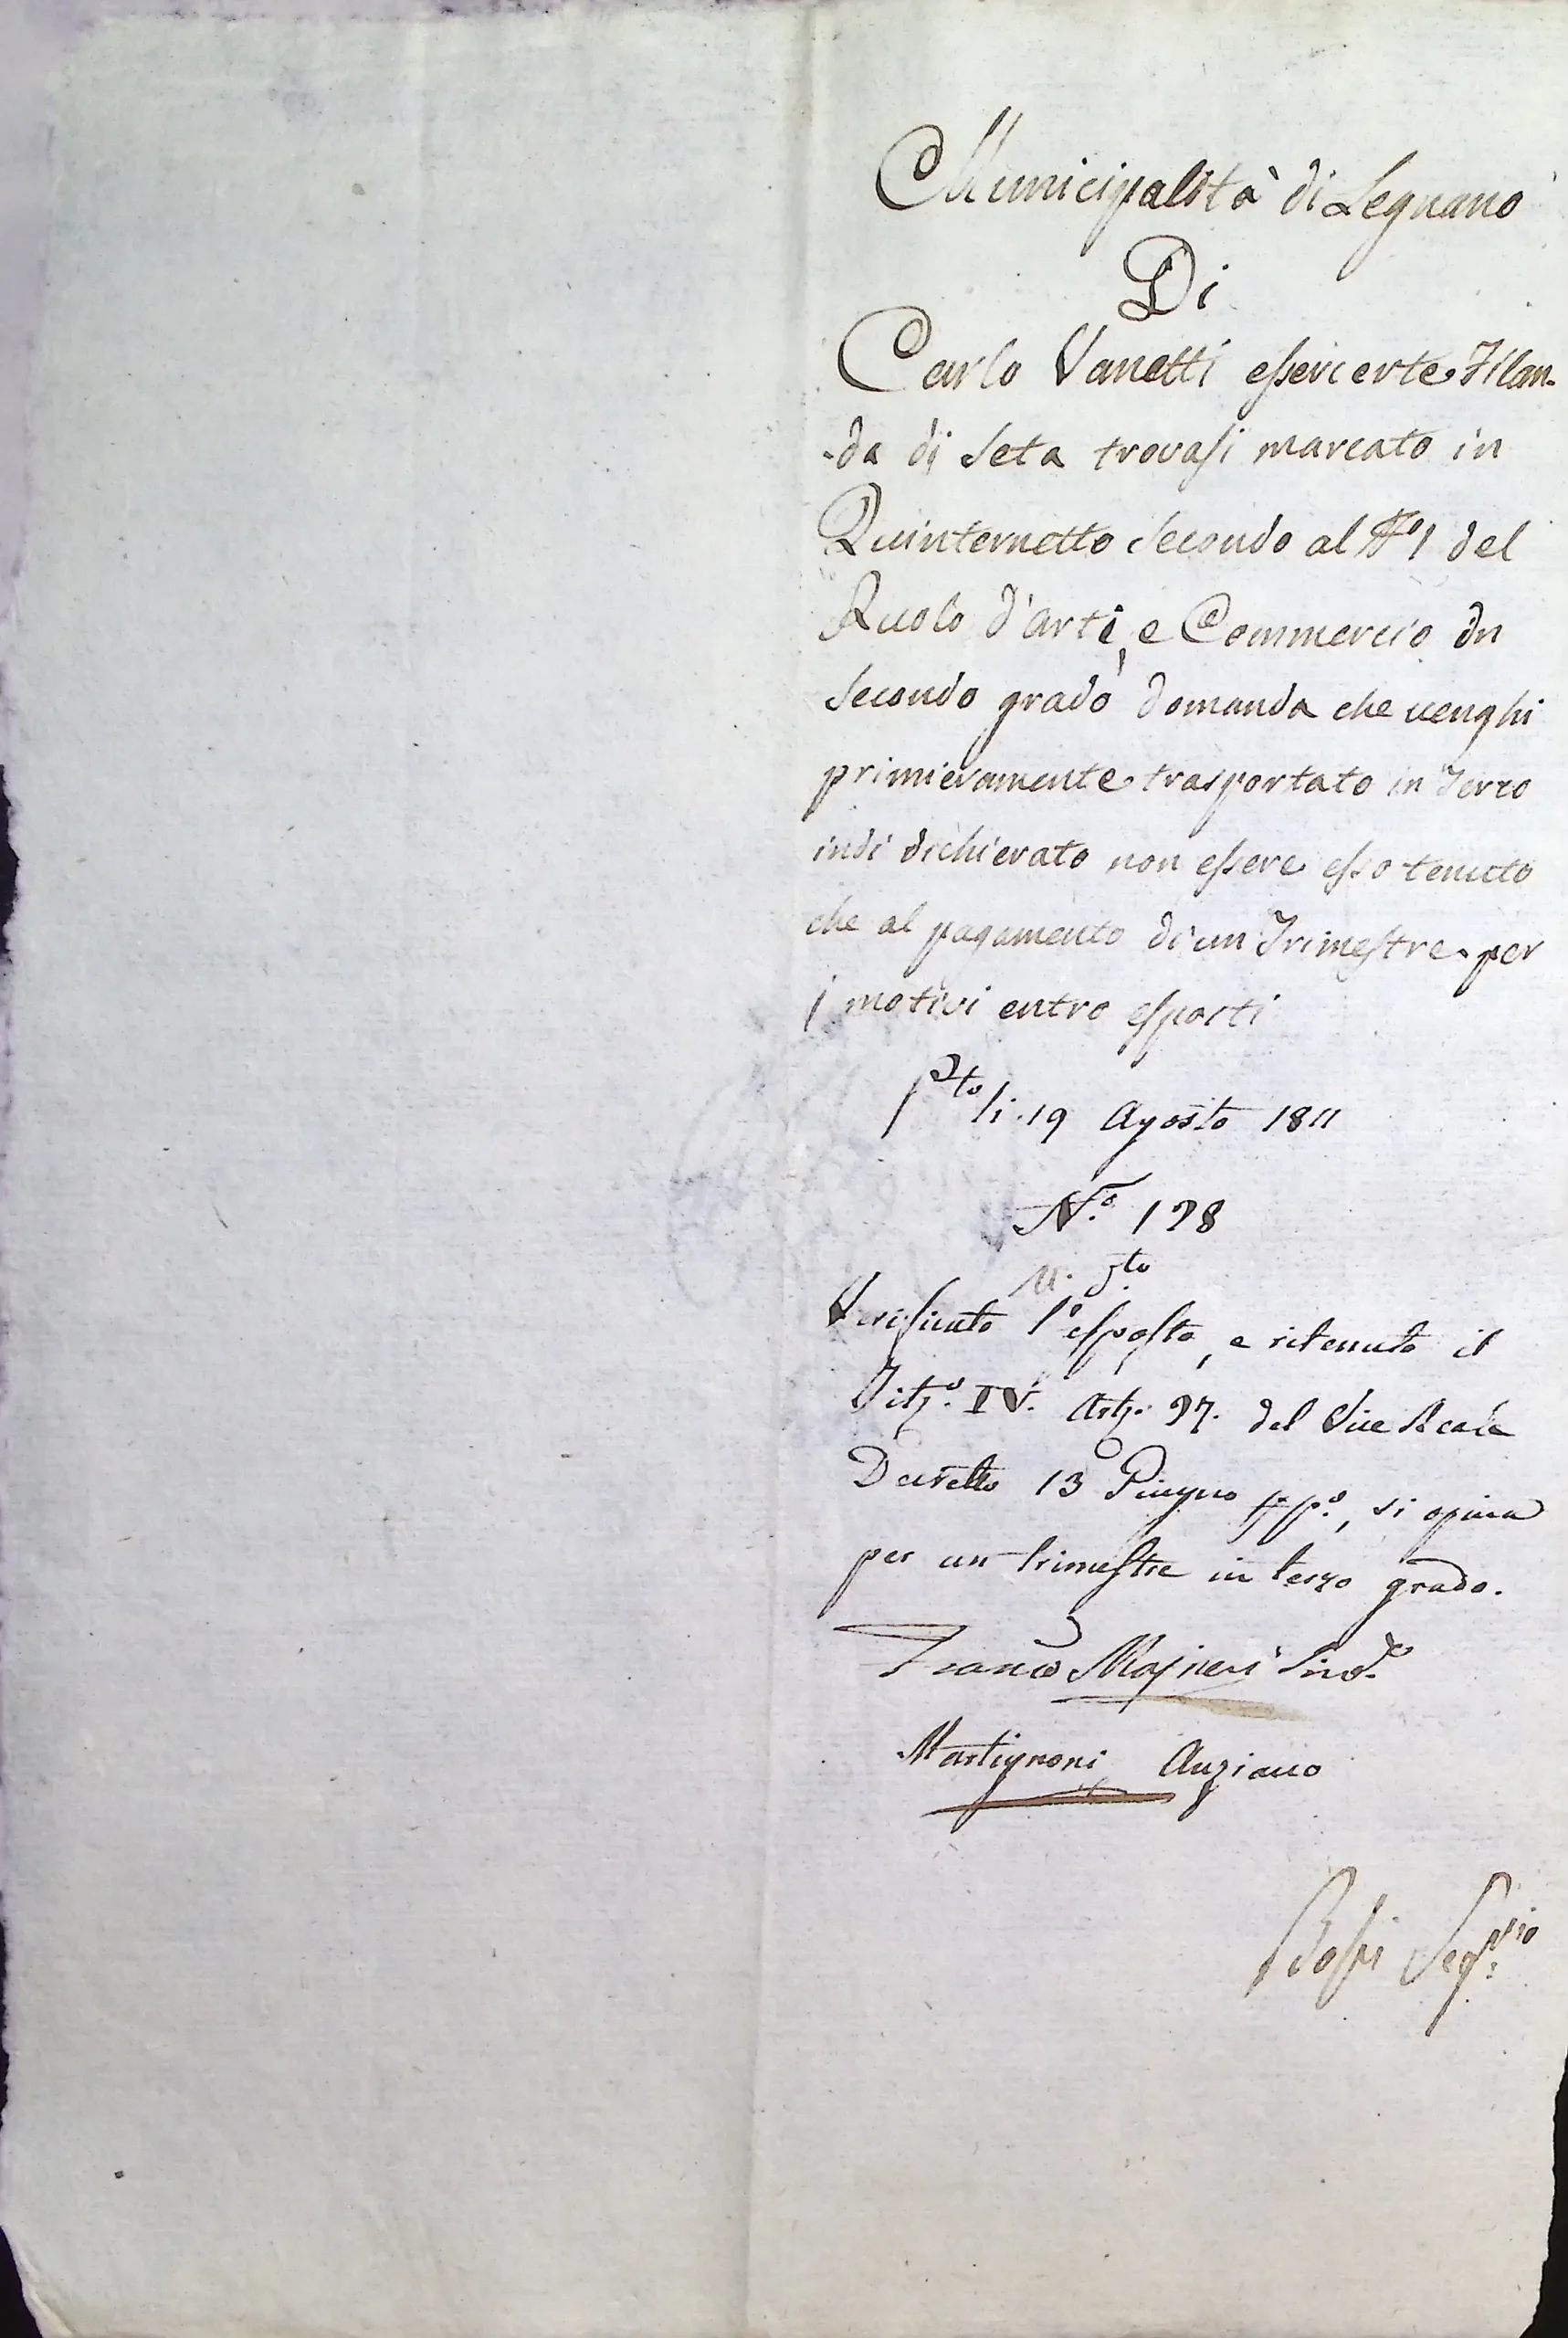 Municipalità di Legnano
Di
Carlo Vanetti essercente Filan-
-da di Seta trovasi marcato in
Quinternetto Secondo al N° 1 del
Ruolo d'arti, e Commercio in
Secondo grado domanda che venghi
primieramente trasportato in Terzo
indi dichierato non essere esso tenuto
che al pagamento di un Trimestre per
i motivi entro esposti
li 19 Agosto 1811
N.° 198
Verificato l'esposto, e ritenuto il
Tit.° IV. Art. 97. del Vice Reale
Decretto 13 Giugno pp.°, si opina
per un trimestre in terzo grado.
Franco Majneri Sind.co
Martignoni Anziano
Bossi Seg.rio